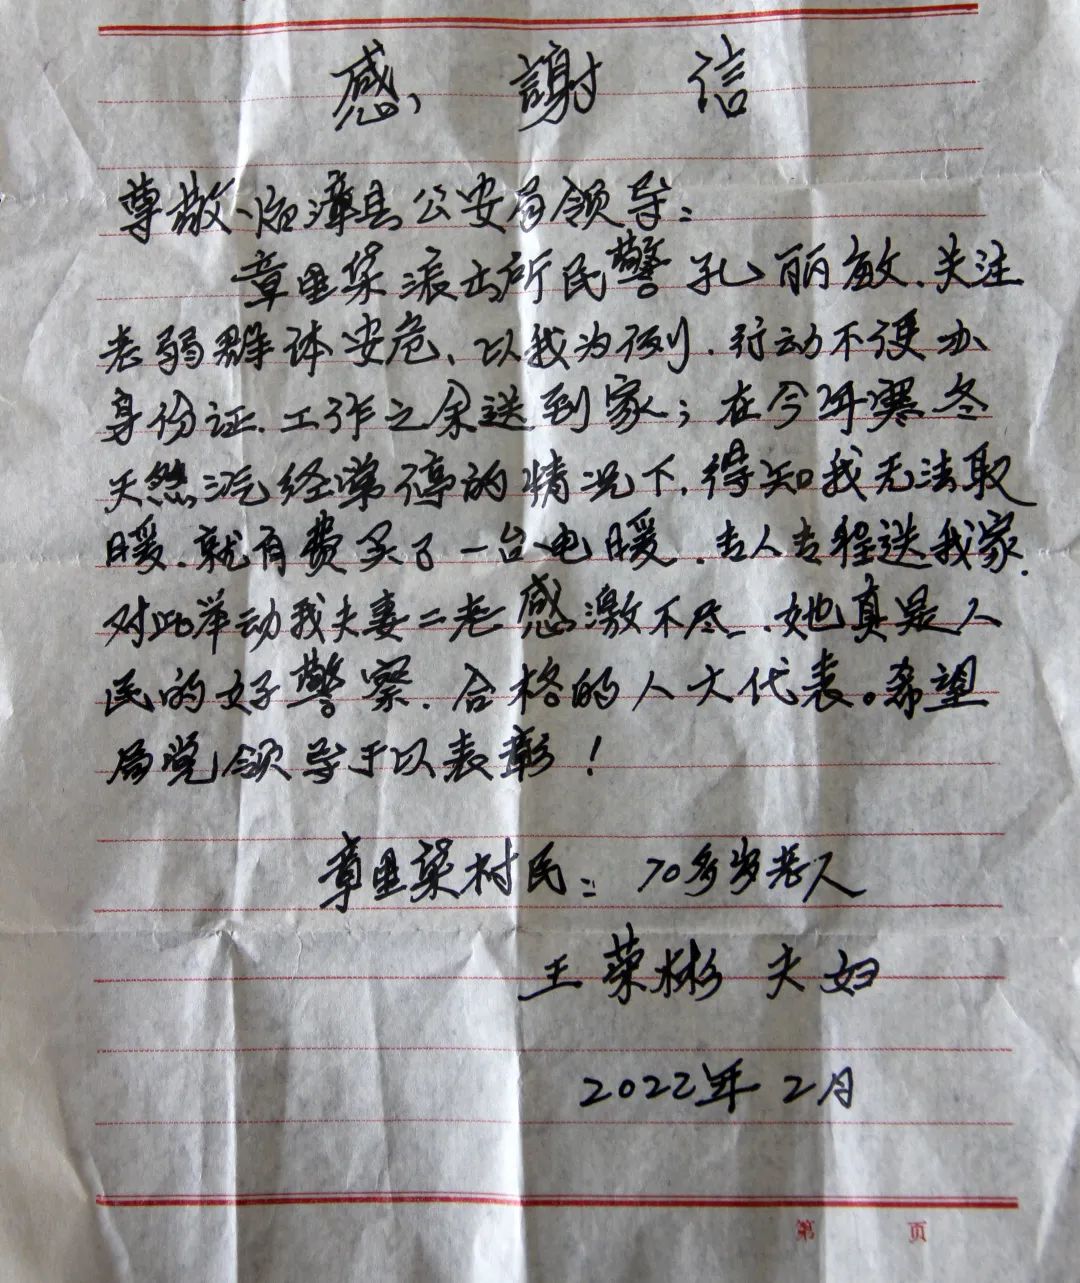 感謝信
尊敬临漳县公安局领导:
章里集派出所民警孔丽敏.关注
老弱群体安危、以我为例.行动不便办
身份证.工作之余送到家;在今年寒冬
天然汽经常停的情况下.得知我无法取
暖.就自费买了一台电暖.专人专程送我家.
对此举动我夫妻二老感激不尽.她真是人
民的好警察.合格的人大代表。希望
局党领导于以表彰!
章里集村民:70多岁老人
王荣彬 夫妇
2022年2月
第 页